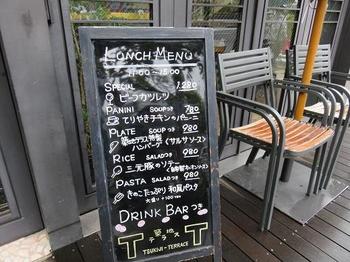 LUNCH MENU
11:00~15:00
SPECIAL 1,280
ビーフカツレツ
PANINI SOUPつき 780
てりやきチキンのパニーニ
PLATE SOUPつき 980
築地テラス特製
ハンバーグ(サルサソース)
RICE SALADつき 980
三元豚のソテー
PASTA SALADつき 980
きのこたっぷり和風パスタ
大盛り+100
DRINK BAR つき
築地
テラス
TSUKIJI-TERRACE